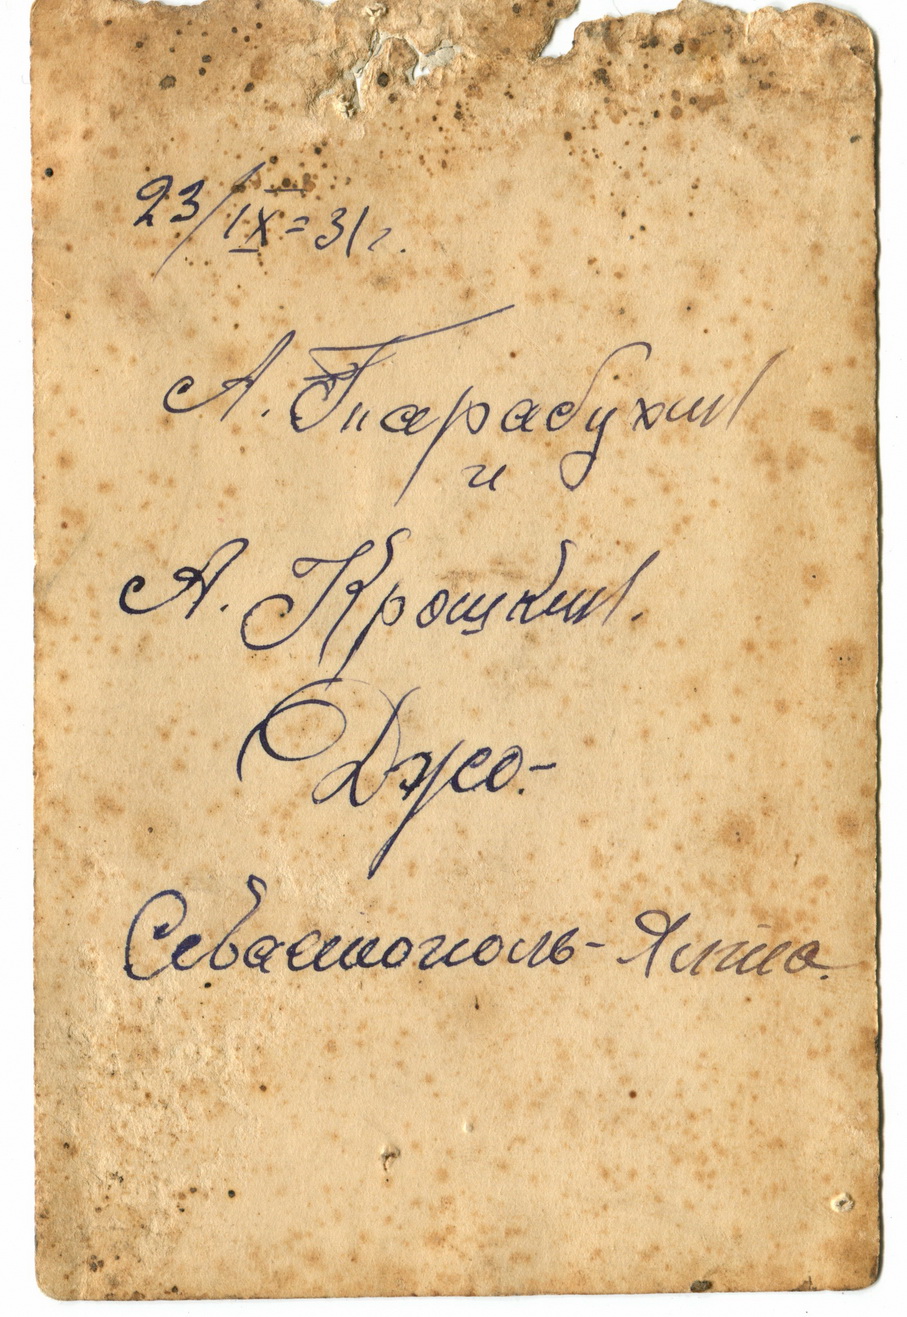 23/IX=31г.
А. Тарабухин
и
А. Крошкин.
Джо-
Севастополь-Ялта.